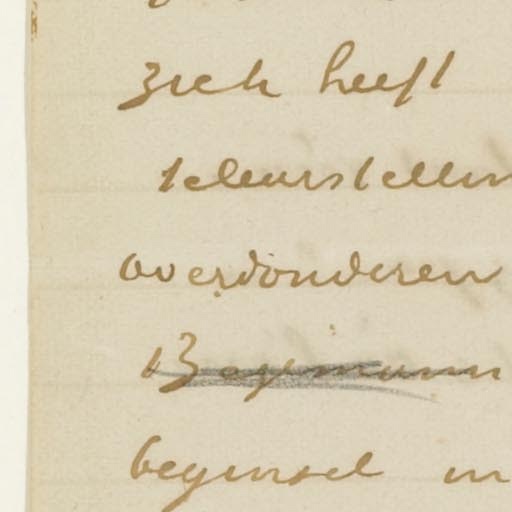 zich heeft
teleurstellin
overdonderen
Begemann
beginsel in